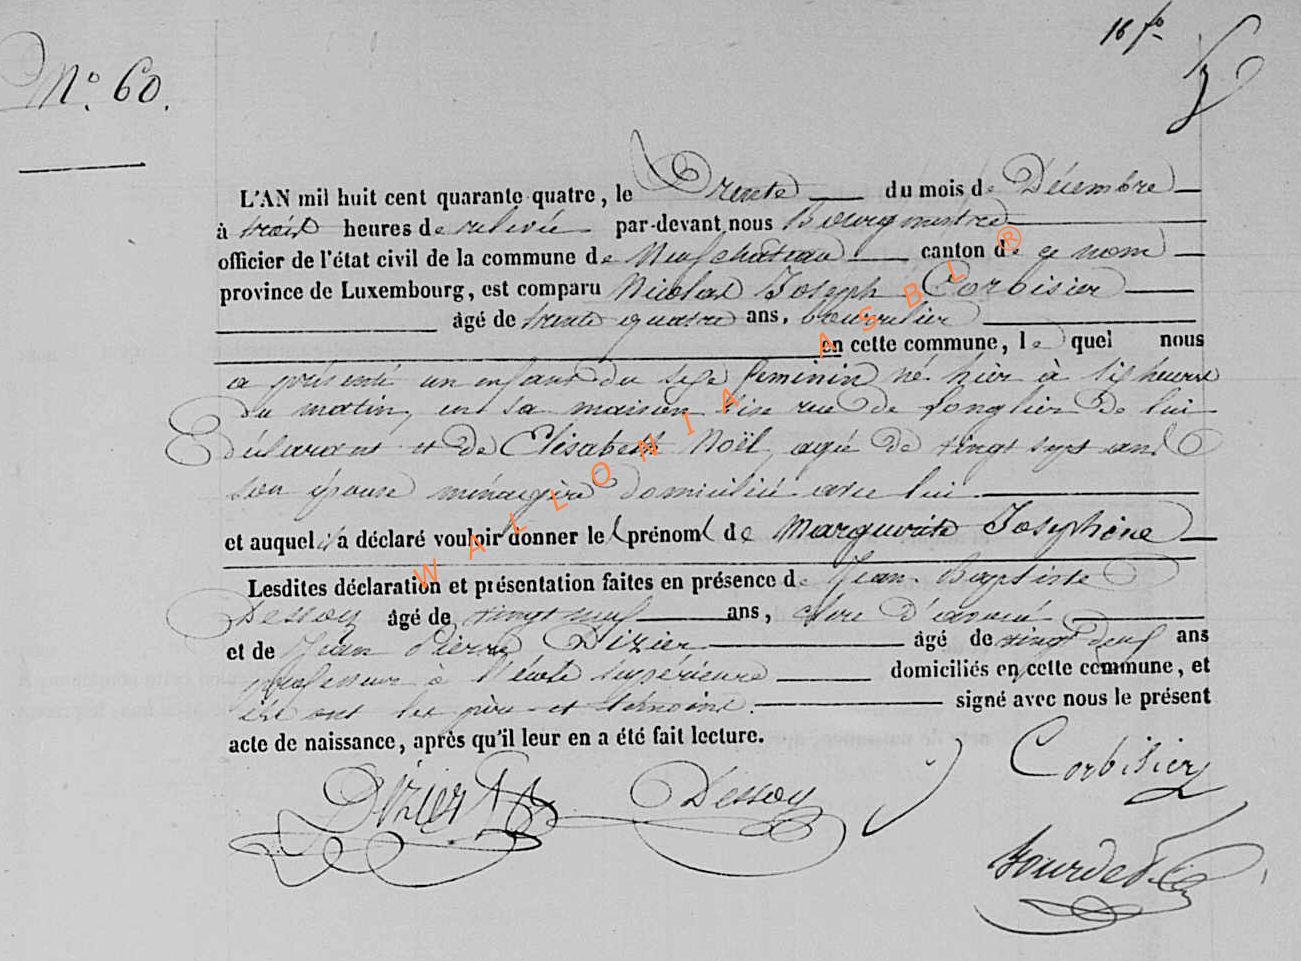 16 fo
No. 60.
L'AN mil huit cent quarante-quatre, le trente du mois de Décembre
à trois heures de relevée par-devant nous Bourgmestre
officier de l'état civil de la commune de Neufchateau canton de ce nom
province de Luxembourg, est comparu Nicolas Joseph Corbisier
âgé de trente quatre ans, bourrelier
en cette commune, le quel nous
a présenté un enfant du sexe feminin né hier à six heures
du matin, en sa maison sise rue de Longlier de lui
Déclarant et de Elisabeth Noël, agée de vingt sept ans
son épouse ménagère domiciliée avec lui
et auquel il a déclaré vouloir donner les prénoms de Marguerite Josephine
Lesdites déclaration et présentation faites en présence de Jean-Baptiste
Dessoy âgé de vingt neuf ans, clerc d'avoué
et de Jean Pierre Dizier âgé de vingt neuf ans
professeur à l'école supérieure domiciliés en cette commune, et
ont les père et témoins signé avec nous le présent
acte de naissance, après qu'il leur en a été fait lecture.
Dizier Dessoy Corbisier
Bourdet
WALLONIA ASBL ®